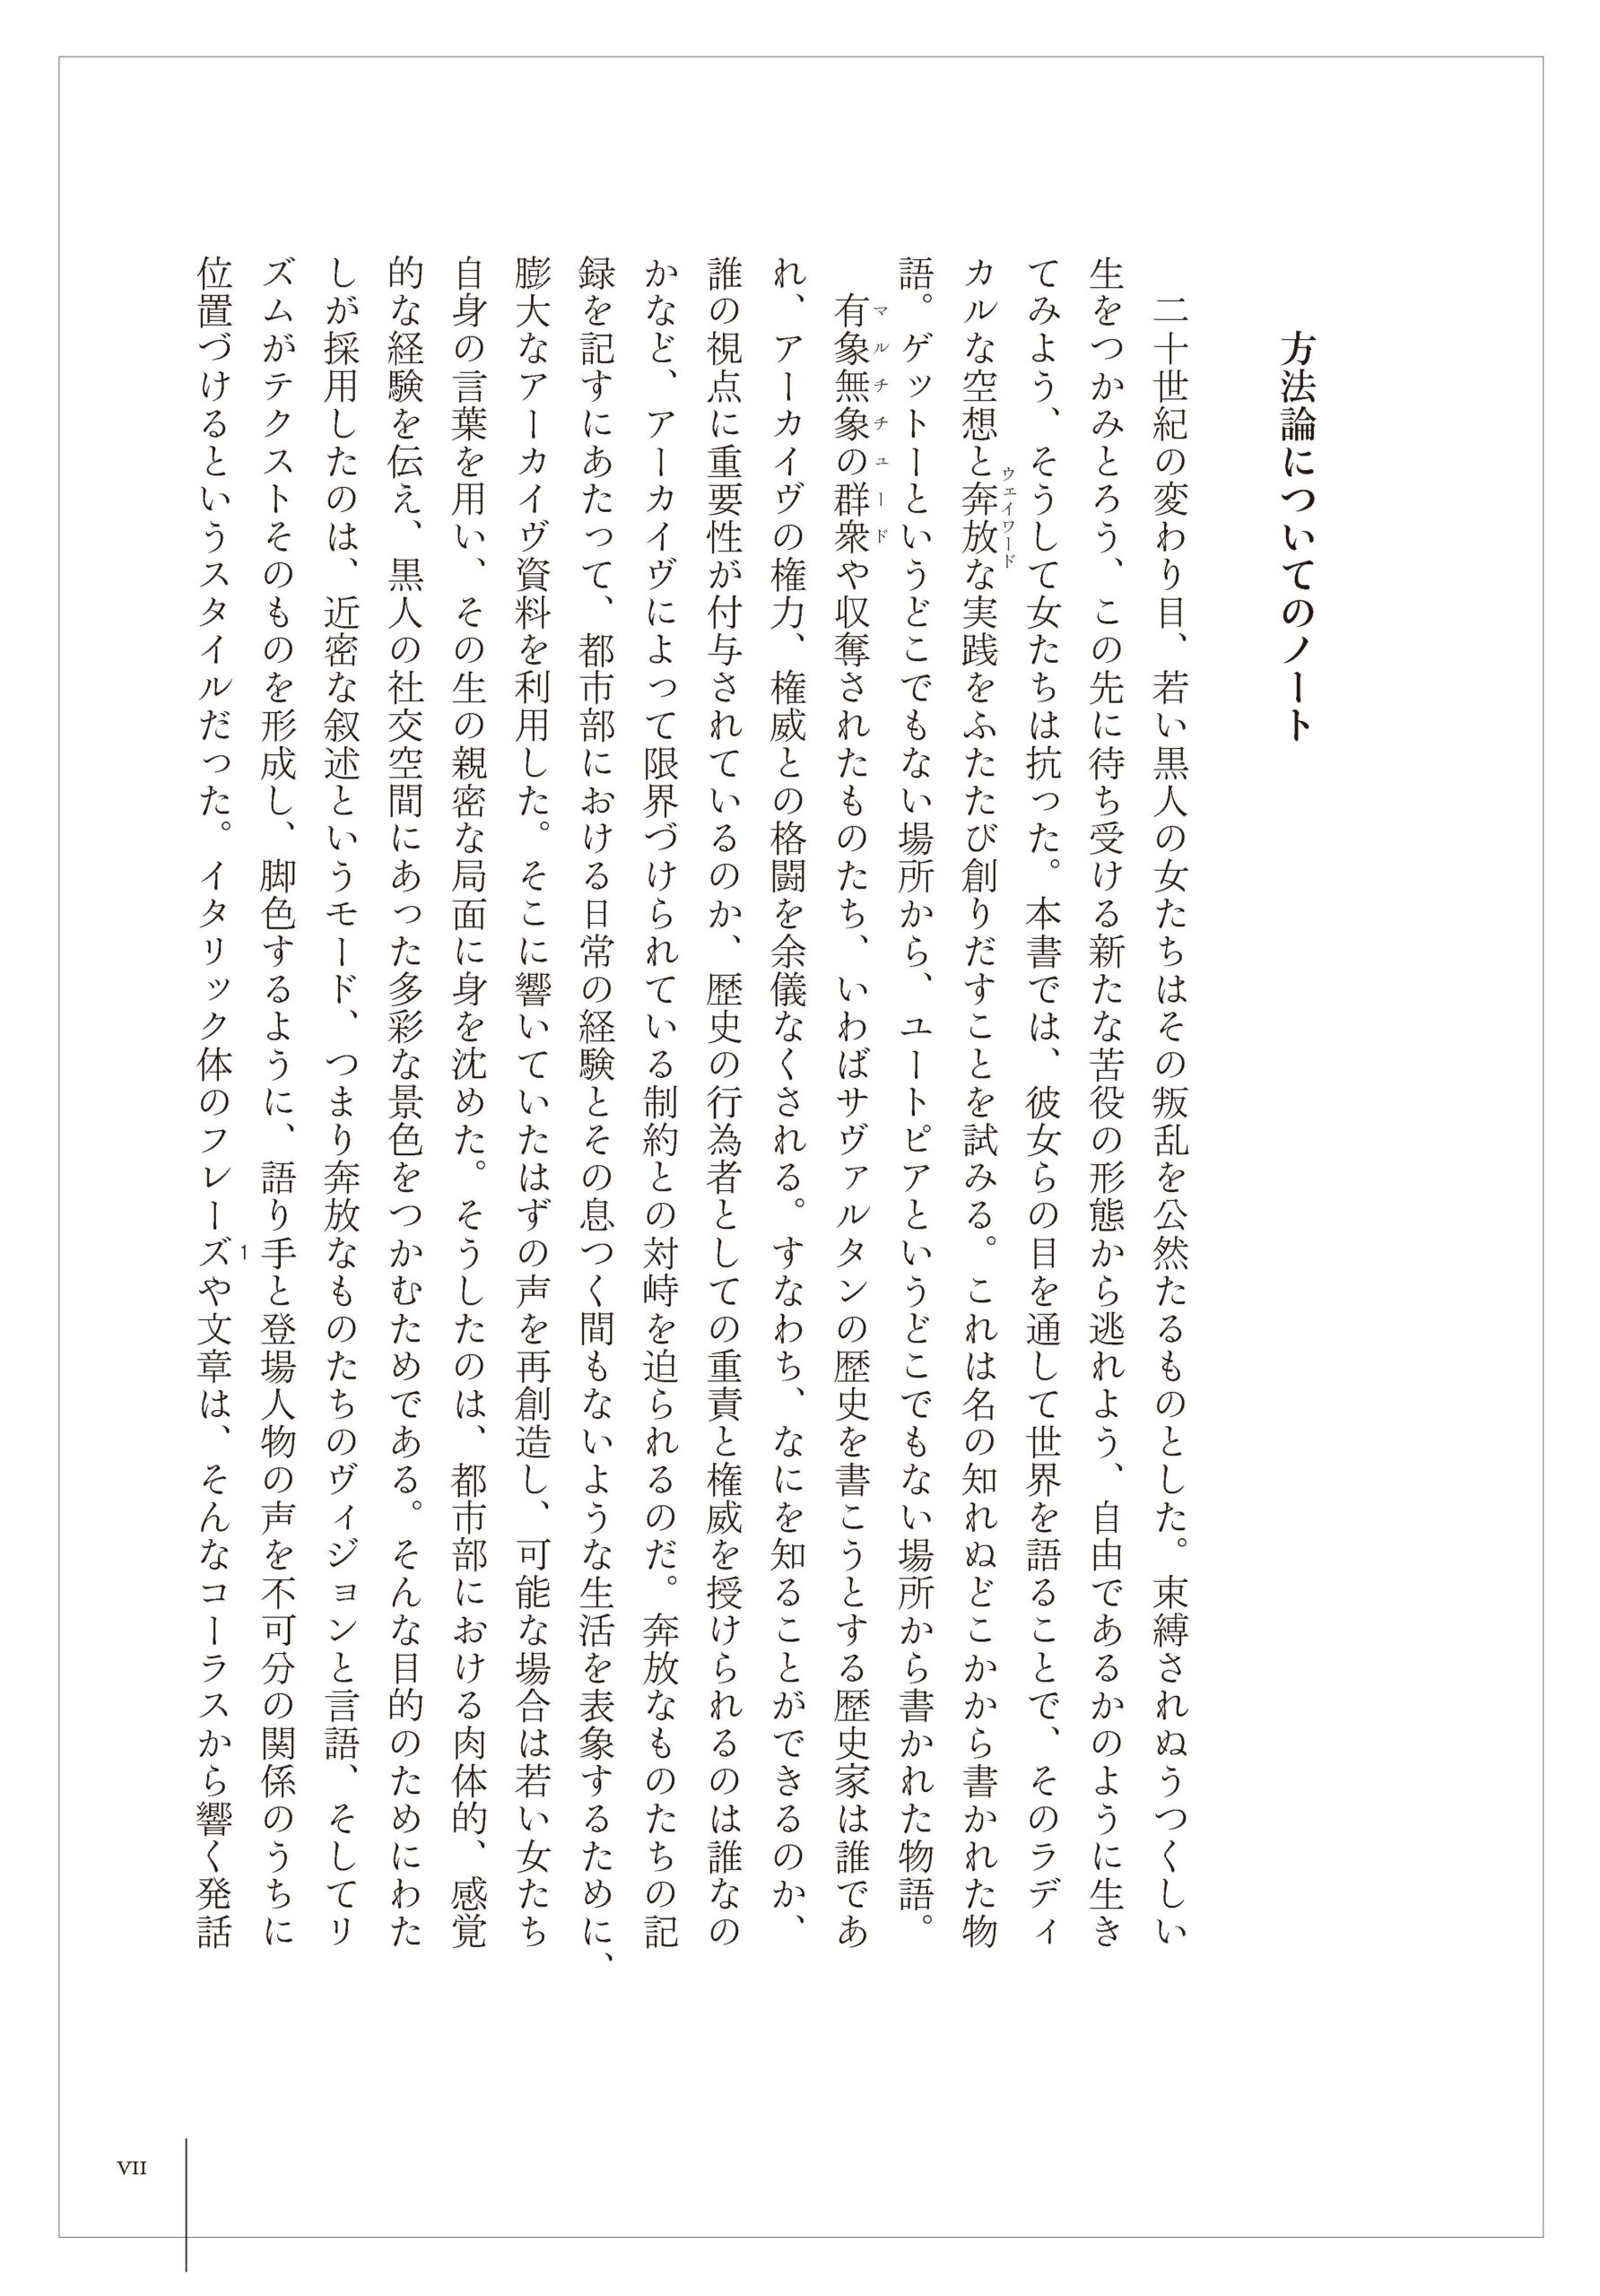 方法論についてのノート
二十世紀の変わり目、若い黒人の女たちはその叛乱を公然たるものとした。束縛されぬうつくしい
生をつかみとろう、この先に待ち受ける新たな苦役の形態から逃れよう、自由であるかのように生き
てみよう、そうして女たちは抗った。本書では、彼女らの目を通して世界を語ることで、そのラディ
カルな空想と奔放な実践をふたたび創りだすことを試みる。これは名の知れぬどこかから書かれた物
ウエイワード
語。ゲットーというどこでもない場所から、ユートピアというどこでもない場所から書かれた物語。
有象無象の群衆や収奪されたものたち、いわばサヴァルタンの歴史を書こうとする歴史家は誰であ
マルチチュード
れ、アーカイヴの権力、権威との格闘を余儀なくされる。すなわち、なにを知ることができるのか、
誰の視点に重要性が付与されているのか、歴史の行為者としての重責と権威を授けられるのは誰なの
かなど、アーカイヴによって限界づけられている制約との対峙を迫られるのだ。奔放なものたちの記
録を記すにあたって、都市部における日常の経験とその息つく間もないような生活を表象するために、
膨大なアーカイヴ資料を利用した。そこに響いていたはずの声を再創造し、可能な場合は若い女たち
自身の言葉を用い、その生の親密な局面に身を沈めた。そうしたのは、都市部における肉体的、感覚
的な経験を伝え、黒人の社交空間にあった多彩な景色をつかむためである。そんな目的のためにわた
しが採用したのは、近密な叙述というモード、つまり奔放なものたちのヴィジョンと言語、そしてリ
ズムがテクストそのものを形成し、脚色するように、語り手と登場人物の声を不可分の関係のうちに
位置づけるというスタイルだった。イタリック体のフレーズや文章は、そんなコーラスから響く発話
1
VII